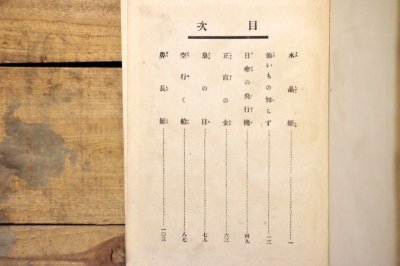 目次
水晶姫 一
怖いもの知らず 一三
日傘の飛行機 四九
正直の金 六三
梟の目 七九
空行く船 八七
鼻長姫 一〇三